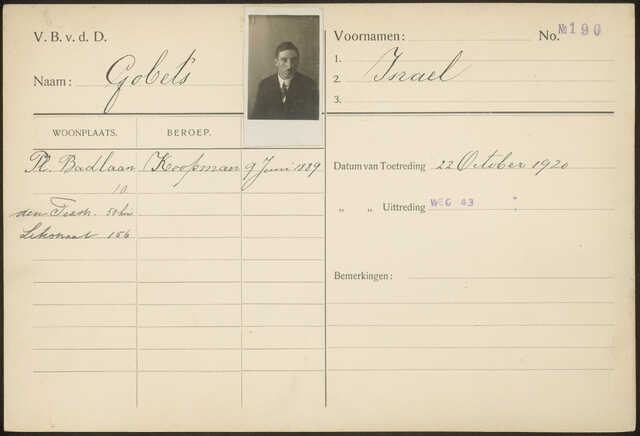 V. B. v. d. D.
Naam: Gobets
Voornamen:
No. № 190
1.
2. Israel
3.
WOONPLAATS.
BEROEP.
Pl. Badlaan
10
Koopman
9 Juni 1889
50 hs
156
Datum van Toetreding 22 October 1920
„ „ Uittreding WEG 43
Bemerkingen: